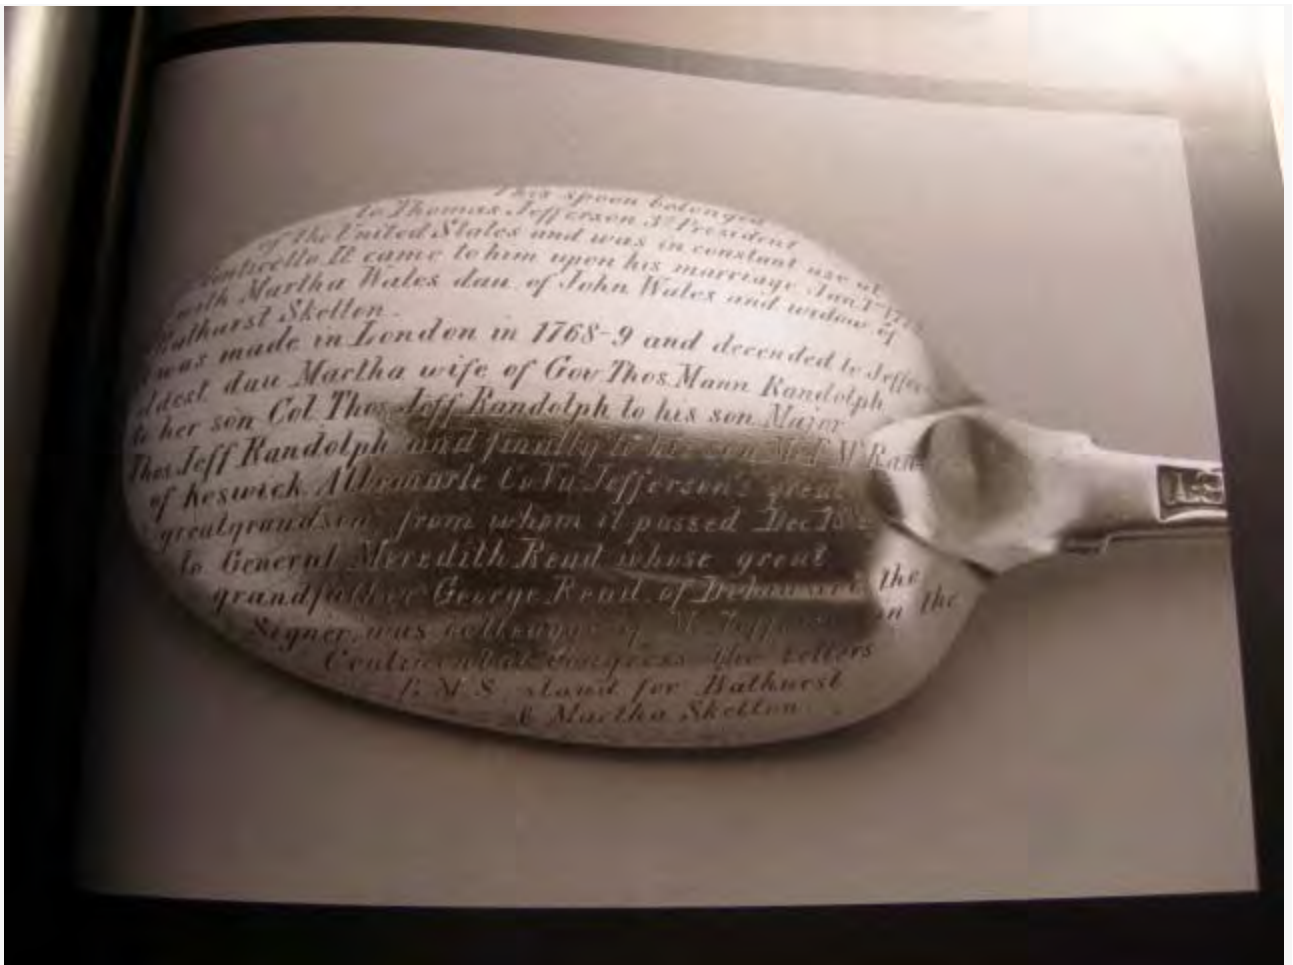 This spoon belonged
to Thomas Jefferson 3d President
of the United States and was in constant use at
Monticello It came to him upon his marriage Jan 1st
with Martha Wales dau. of John Wales and widow of
Bathurst Skelton.
was made in London in 1768-9 and decended to Jeffer
eldest dau Martha wife of Gov Thos. Mann Randolph
to her son Col Thos Jeff Randolph to his son Major
Thos. Jeff Randolph and finally to his son Ran
of Keswick Albemarle Co Va Jefferson's great
greatgrandson from whom it passed Dec 18
to General Meredith Read whose great
grandfather George Read of the
Signer, was colleague of Mr. Jefferson in the
Continental Congress the letters
B M S stand for Bathurst
& Martha Skelton.